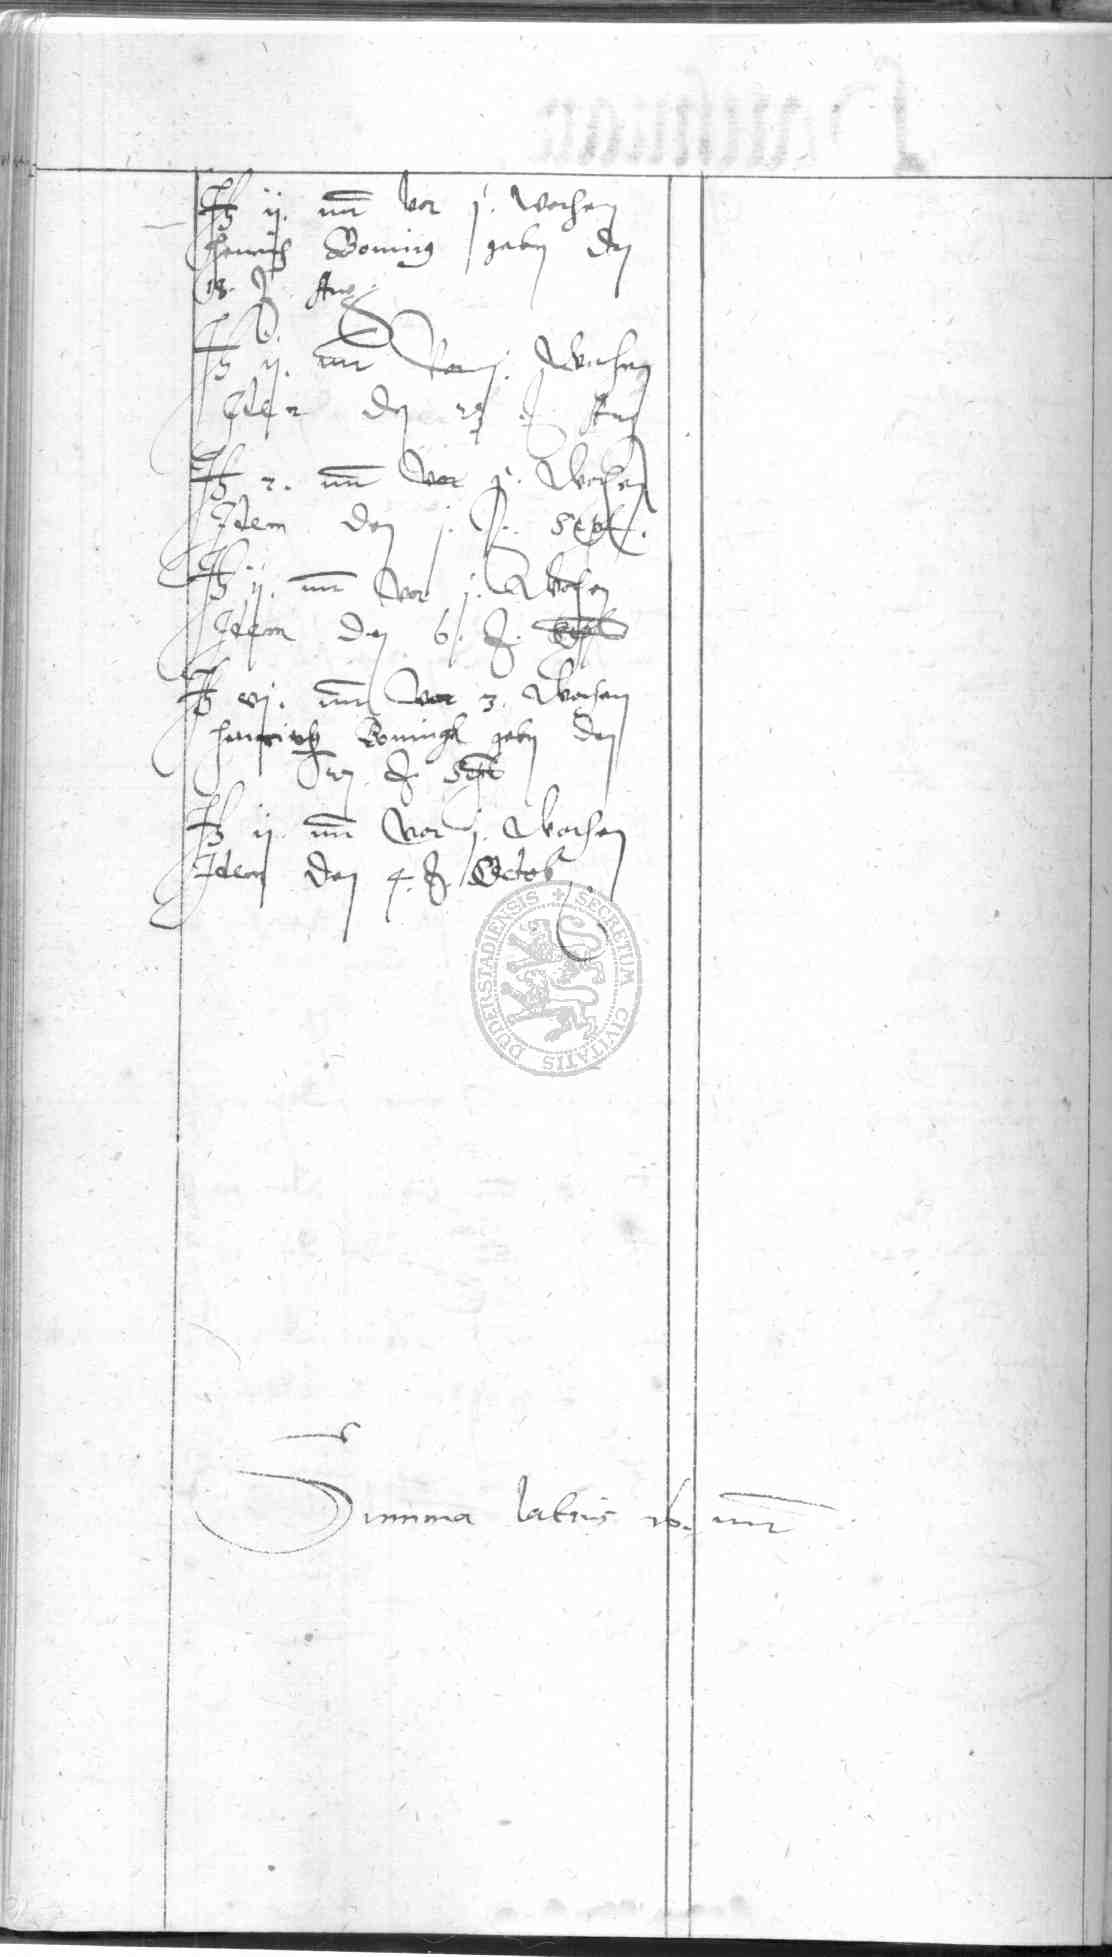 It ij. mr vor j. Wochen
Henrich Boning geben den
18. Aug.
It ij. mr Vor j. Wochen
Idem den Aug
It 2. mr Vor j. Wochen
Idem den j. Sept.
It ij. mr Vor j. Wochen
Idem den 6.
It vj. mr Vor 3. Wochen
Henrich Boningk geben den
Sept
It ij mr Vor j. Wochen
Idem den 4. Octob
SECRETUM CIVITATIS DUDERSTADIENSIS
Summa lateris 16. mr